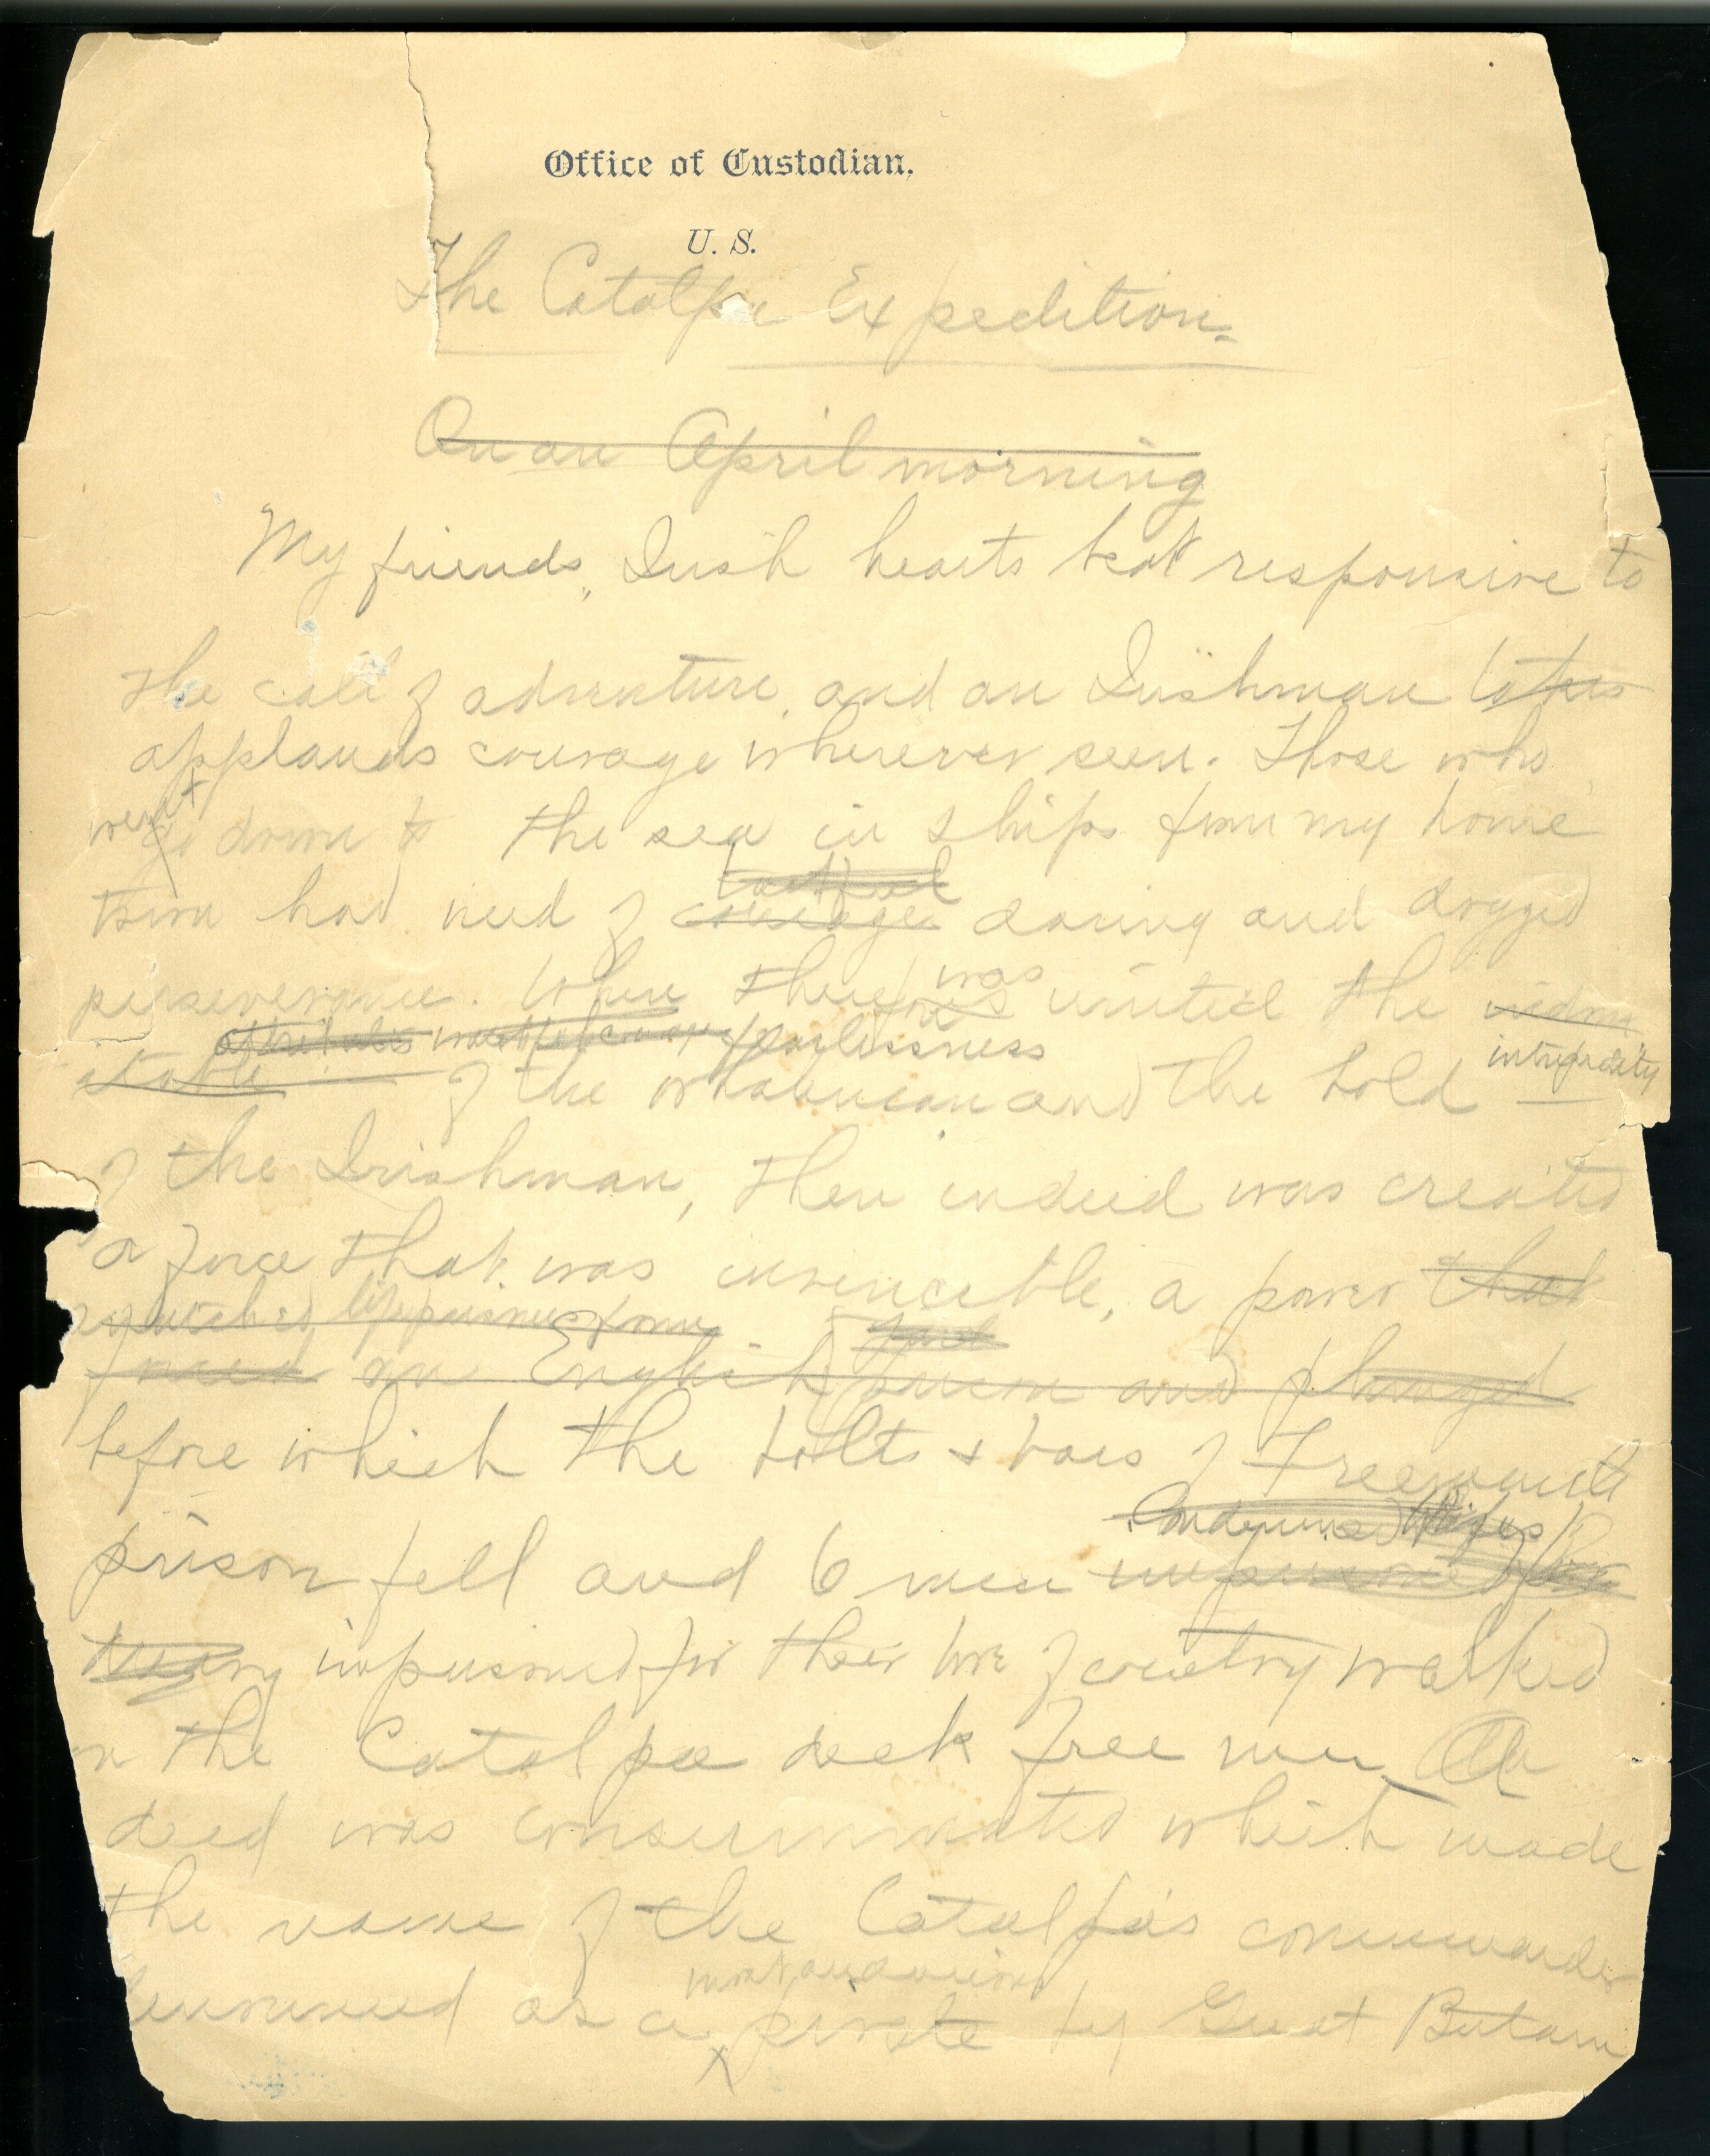 Office of Custodian,
U. S.
The Catalpa Expedition.
On an April morning
My friends, Irish hearts beat responsive to
the call of adventure, and an Irishman
applauds courage wherever seen. Those who
went
go down to the sea in ships from my home
tactful
town had need of courage daring and dogged
was
perseverance. When there was united the
attributes fearlessness
intrepidity
of the whaleman and the bold
of the Irishman, then indeed was created
a force that was invincible, a power that
snatched from
forced an English prison and plunged
before which the bolts & bars of Freemantle
Condemned
prison fell and 6 men imprisoned for
imprisoned for their love of country walked
on the Catalpa deck free men A
deed was consummated which made
the name of the Catalpa's commander
denounced as a pirate by Great Britain